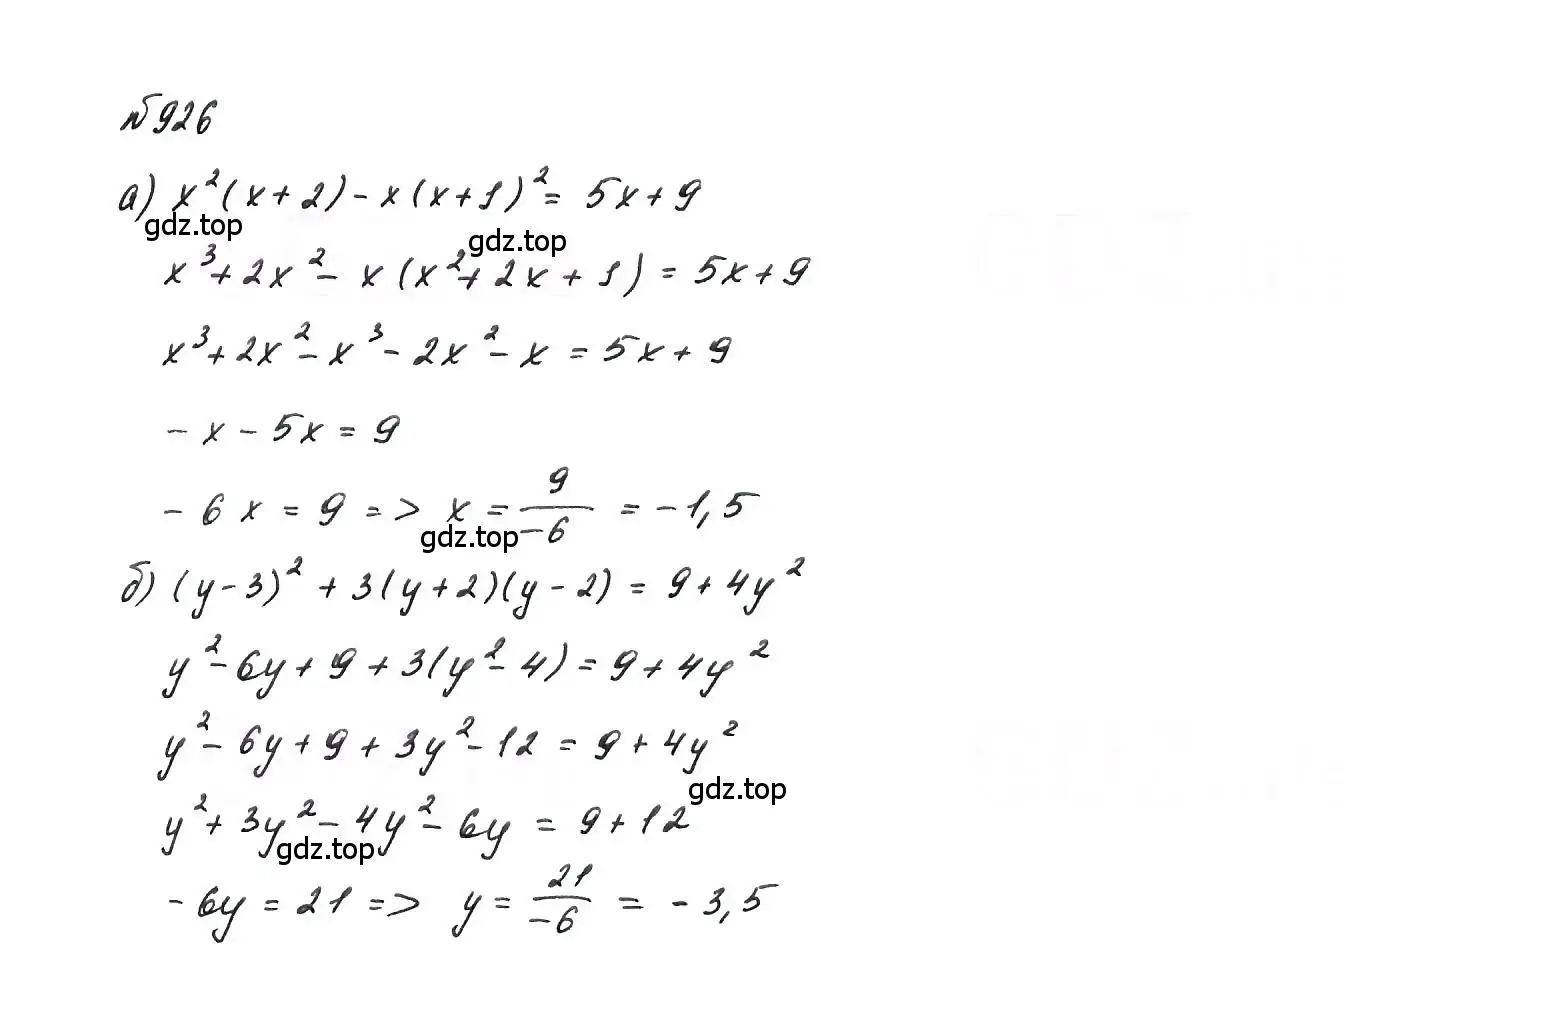 №926
а) x²(x+2)-x(x+1)²= 5x+9
gdz.top
gdz.top
x³+2x²- x(x²+2x+1)=5x+9
x³+2x²-x³-2x²-x=5x+9
-x-5x=9
-6x=9=> x=9/-6=-1,5
gdz.top
б) (y-3)²+3(y+2)(y-2)=9+4y²
y²-6y+9+3(y²-4)=9+4y²
y²-6y+9+3y²-12=9+4y²
gdz.top
y²+3y²-4y²-6y=9+12
gdz.top
-6y=21=> y=21/-6=-3,5